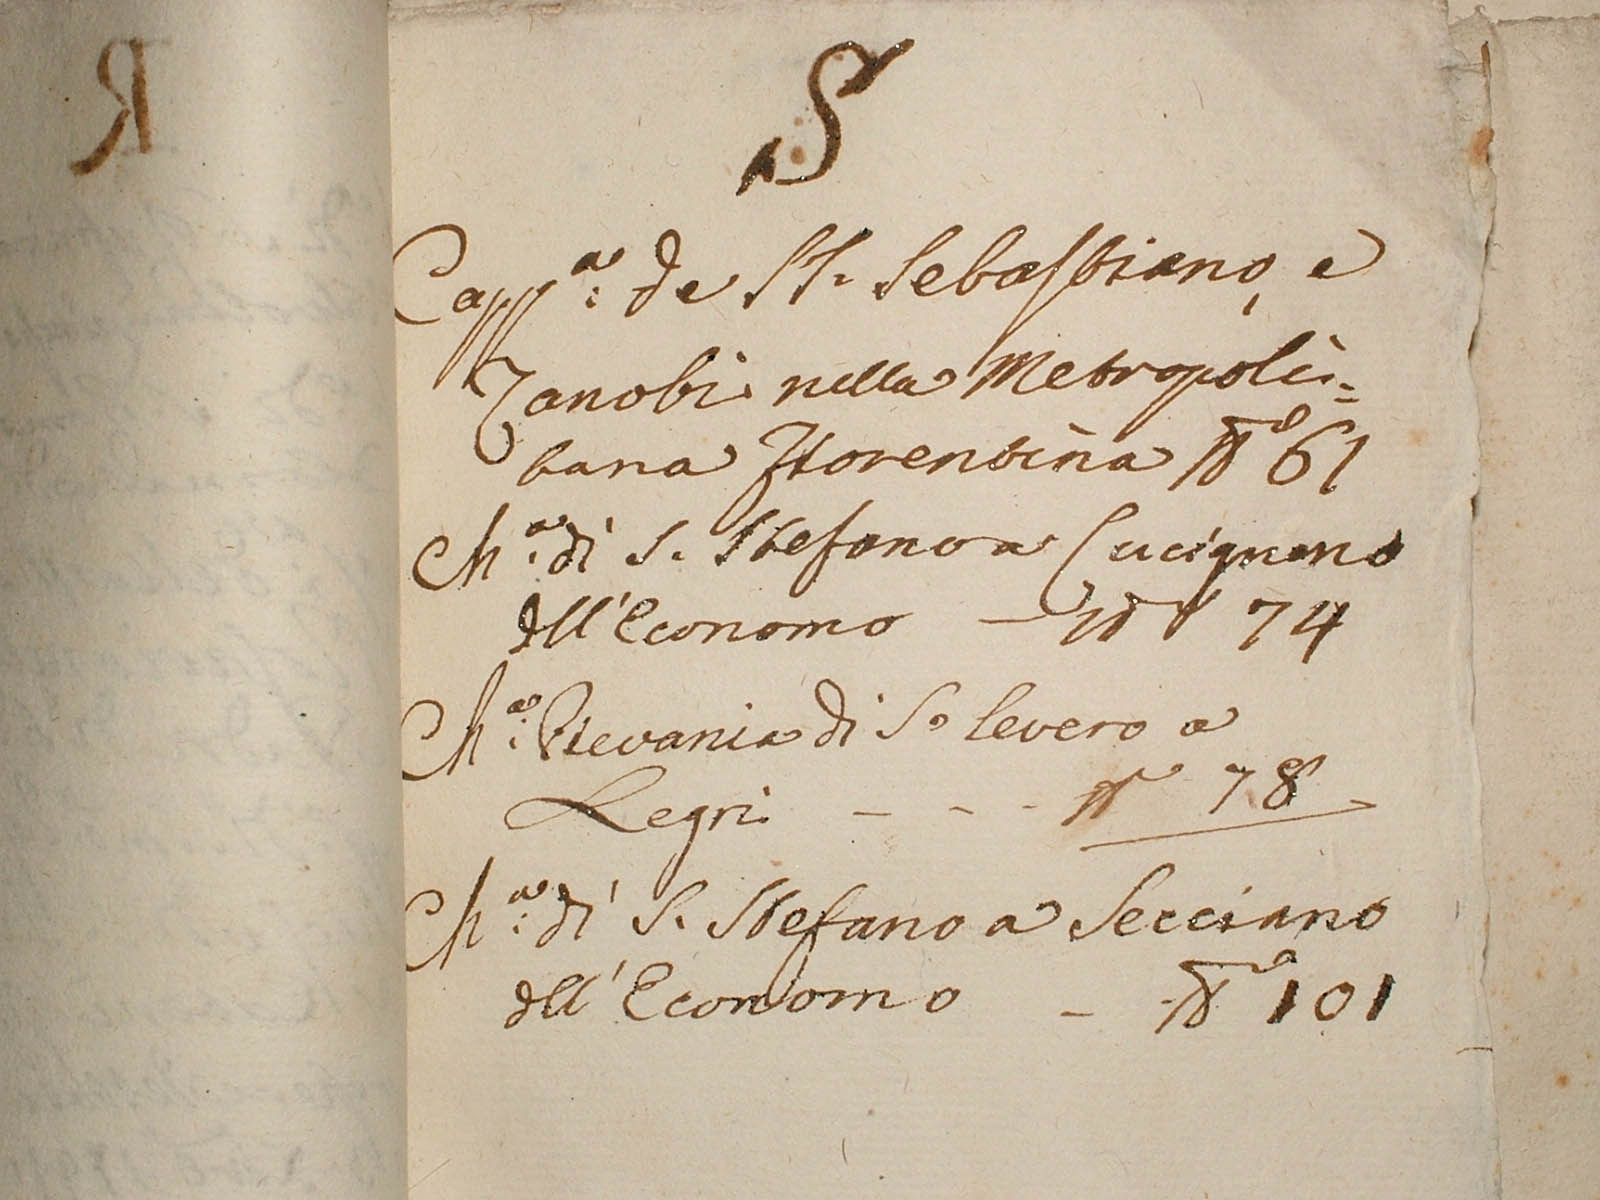 R
S
Capp.a de SS. Sebastiano, e
Zanobi nella Metropoli=
tana Fiorentina No 61
Ch.a di S. Stefano a Cucignano
dell'Economo — No 74
Ch.a Pievania di S. Severo a
Legri - - - No 78
Ch.a di S. Stefano a Secciano
dell'Economo - No 101